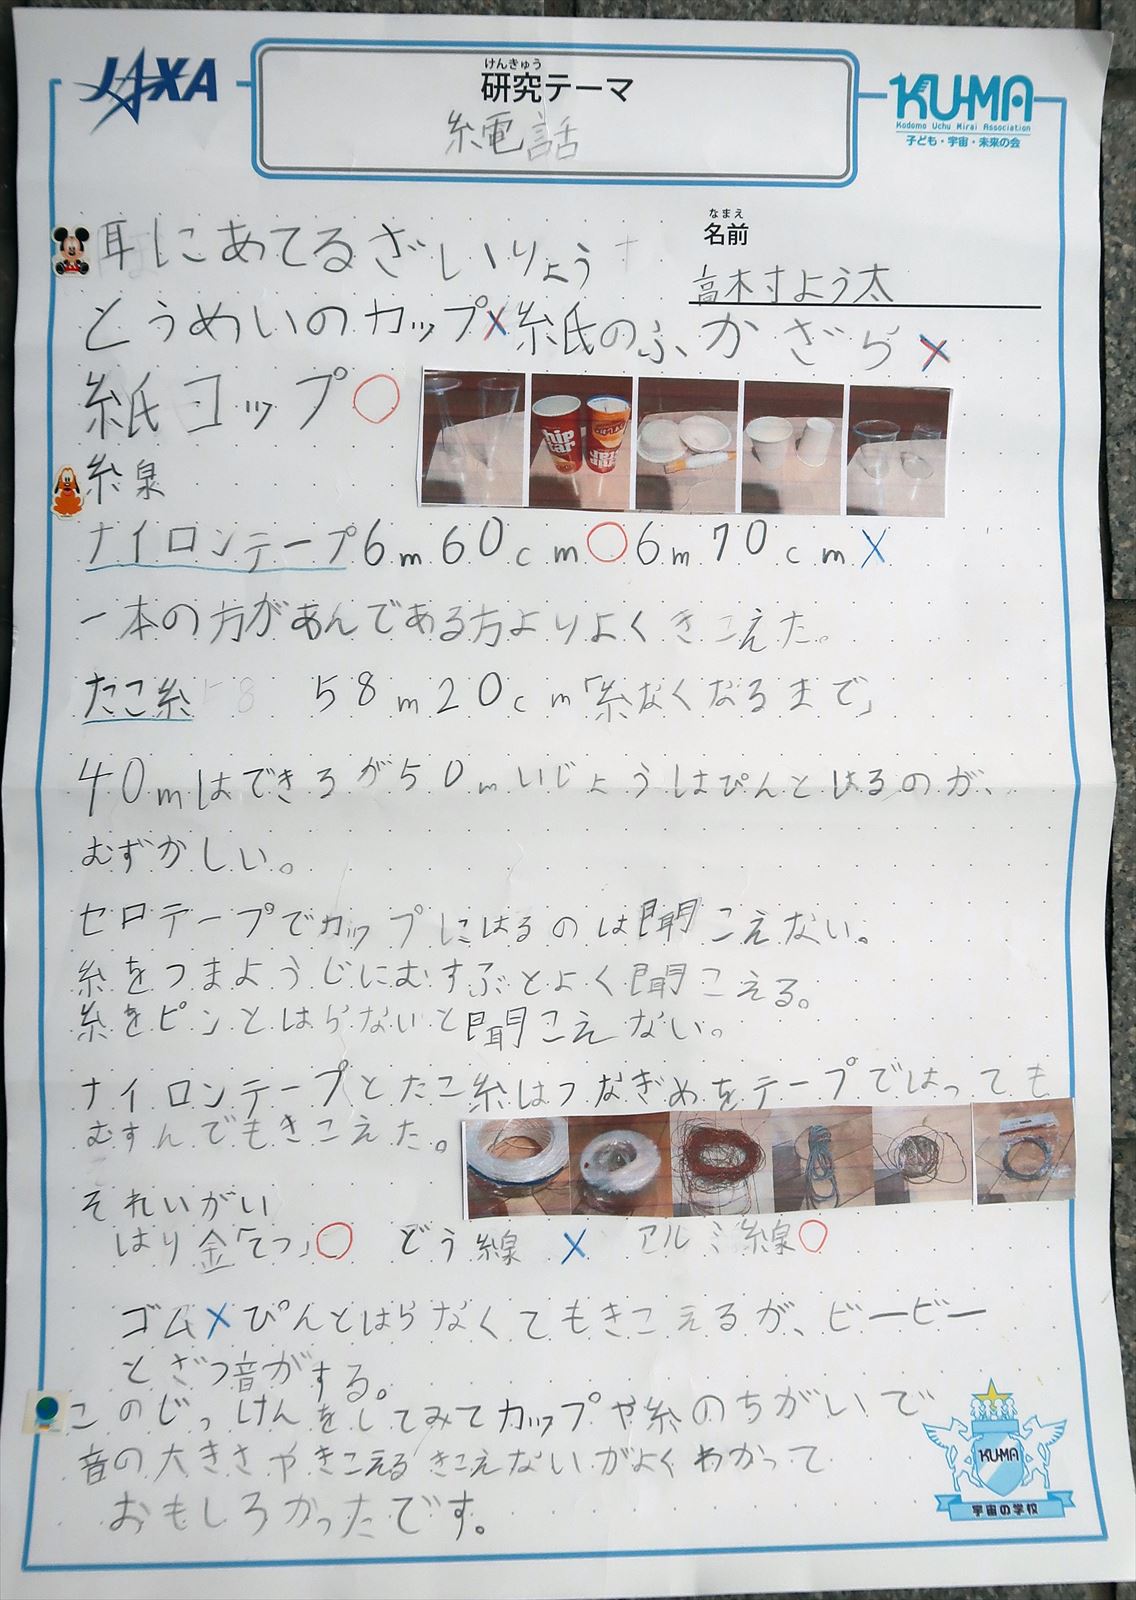 JAXA
けんきゅう
研究テーマ
糸電話
KU-MA
Kodomo Uchu Mirai Association
子ども・宇宙・未来の会
なまえ
名前
高木寸よう太
耳にあてるざいりょう
とうめいのカップ×紙のふかざら×
紙コップ○
線
ナイロンテープ6m60cm○6m70cm×
一本の方があんである方よりよくきこえた。
たこ糸 58m20cm「糸なくなるまで」
40mはできるが50mいじょうはぴんとはるのが、
むずかしい。
セロテープでカップにはるのは聞こえない。
糸をつまようじにむすぶとよく聞こえる。
糸をピンとはらないと聞こえない。
ナイロンテープとたこ糸はつなぎめをテープではっても
むすんでもきこえた。
それいがい
はり金「てつ」○ どう線 × アルミ線○
ゴム×ぴんとはらなくてもきこえるが、ビービー
とざつ音がする。
このじっけんをしてみてカップや糸のちがいで
音の大きさやきこえるきこえないがよくわかって
おもしろかったです。
KU-MA
宇宙の学校